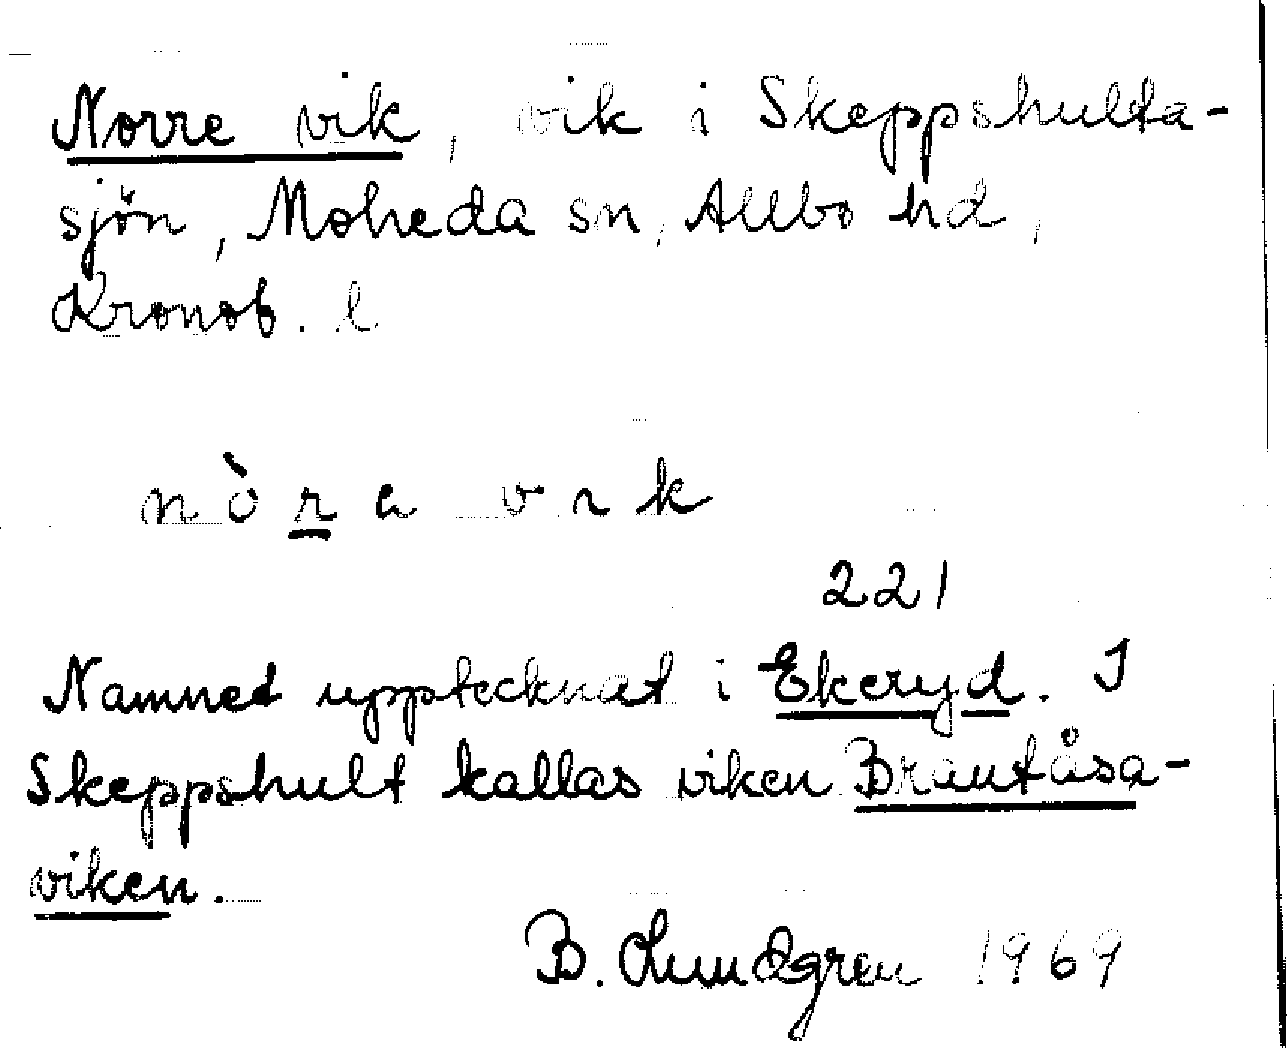 Norre vik, vik i Skeppshulta-
sjön, Moheda sn, Allbo hd,
Kronob. l
nòra vɩk
221
Namnet upptecknat i Ekeryd. I
Skeppshult kallas viken Brantåsa-
viken.
B. Lundgren 1969